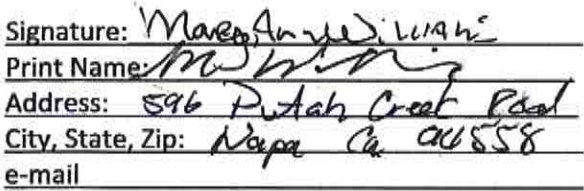 Signature: Mary Ann Williams
Print Name:
Address: 596 Putah Creek Road
City, State, Zip: Napa Ca 94558
e-mail